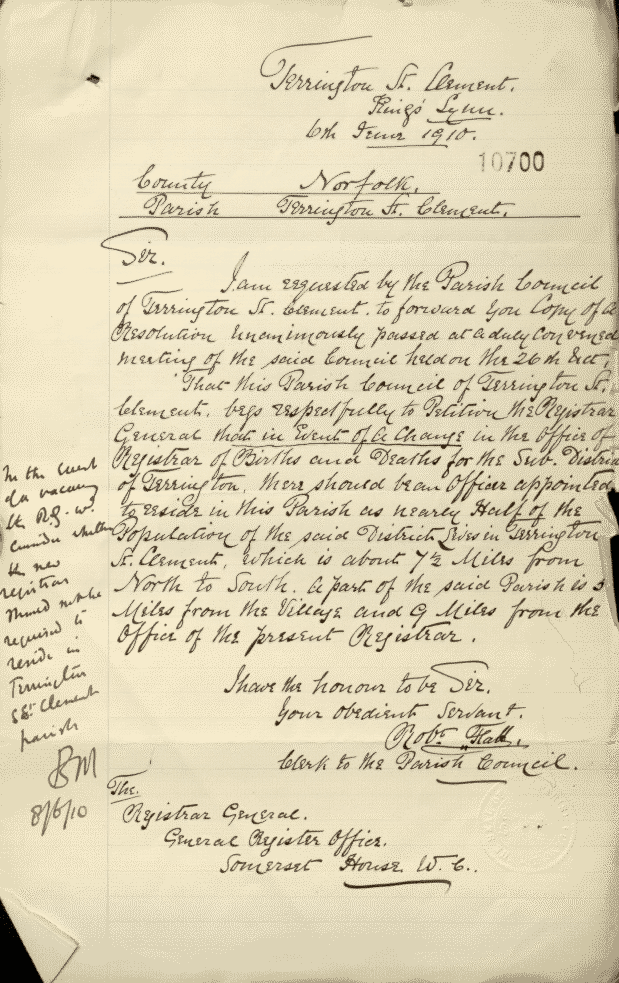 Terrington St. Clement.
King's Lynn.
6th June 1910.
10700
County Norfolk.
Parish Terrington St. Clement.
Sir.
I am requested by the Parish Council
of Terrington St. Clement. to forward you Copy of a
Resolution unanimously passed at a duly convened
meeting of the said Council held on the 26th
That this Parish Council of Terrington St.
Clement. begs respectfully to Petition the Registrar
General that in Event of a Change in the Office of
Registrar of Births and Deaths for the Sub. District
of Terrington, there should be an Officer appointed
to reside in this Parish as nearly Half of the
Population of the said District lives in Terrington
St. Clement, which is about 7½ Miles from
North to South. A part of the said Parish is 5
Miles from the Village and 9 Miles from the
Office of the present Registrar.
I have the honour to be Sir.
Your Obedient Servant.
Robt.
Clerk to the Parish Council.
The.
Registrar General.
General Register Office.
Somerset House W.C.
In the event
of a vacancy
the R.G. wd.
consider whether
the new
registrar
should not be
required to
reside in
Terrington
St Clement
parish
BM
8/6/10